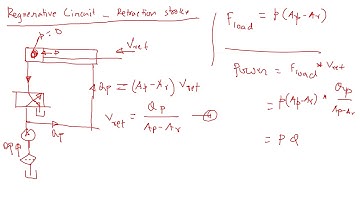 Regenerative Circuit _ Retraction stroke
p=0
Vret
Qp = (Ap-Ar) Vret
Vret = Qp / Ap-Ar
Qp
Qp
Fload = p(Ap-Ar)
Power = Fload * Vret
= p(Ap-Ar) * Qp / Ap-Ar
= P Q